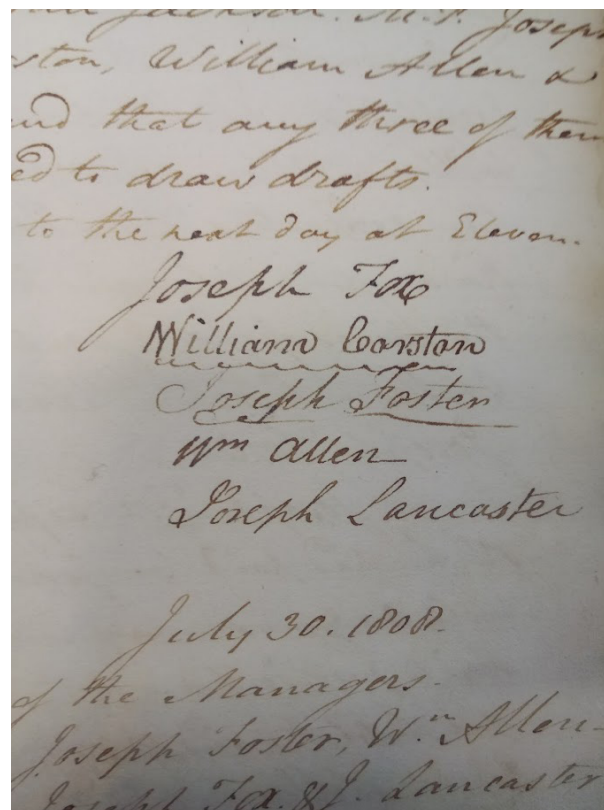 Jackson. M.P. Joseph
ston, William Allen &
and that any three of them
ed to draw drafts.
to the next day at Eleven.
Joseph Fox
William Corston
Joseph Foster
Wm Allen
Joseph Lancaster
July 30. 1808.
of the Managers.
Joseph Foster, Wm Allen
Joseph Fox. & J. Lancaster